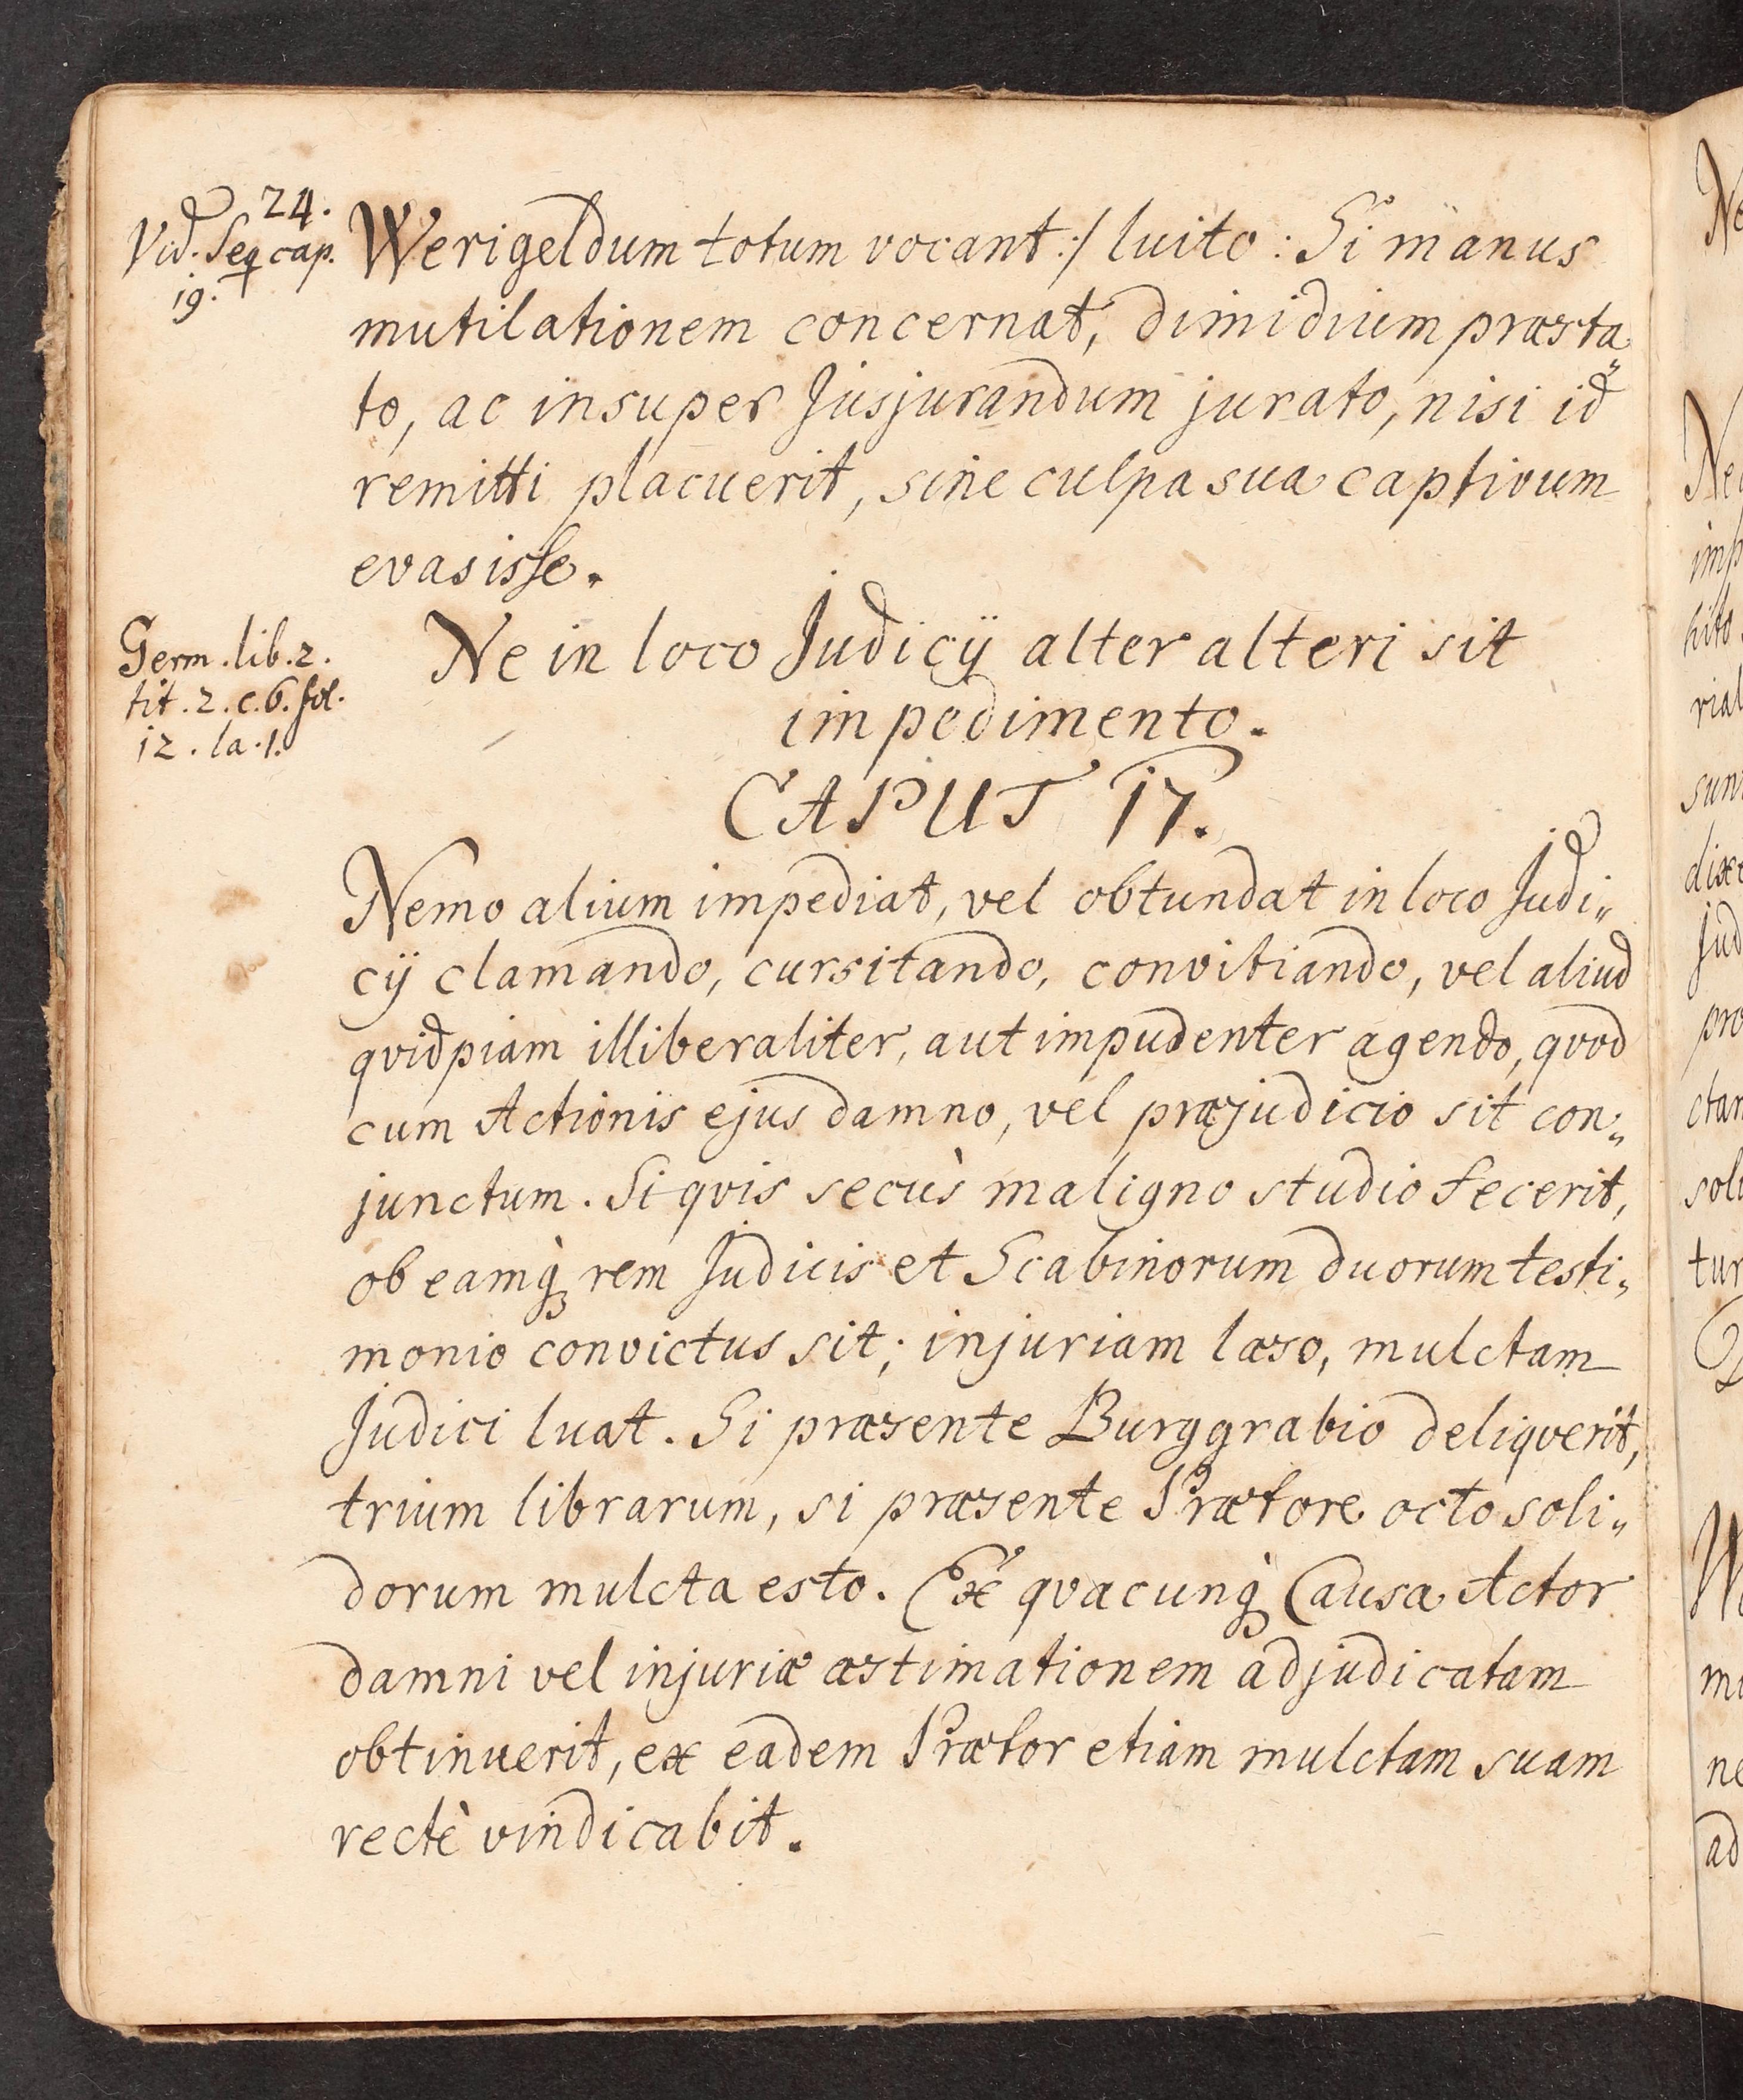 24.
Vid. Seq cap.
19.
Werigeldum totum vocant:/ luito: Si manus
mutilationem concernat, dimidium præsta„
to, ac insuper Jusjurandum jurato, nisi id
remitti placuerit, sine culpa sua captivum
evasisse.
Germ. lib. 2.
tit. 2. c. 6. fol.
12. la. 1.
Ne in loco Judicÿ alter alteri sit
impedimento.
CAPUT 17.
Nemo alium impediat, vel obtundat in loco Judi„
cÿ clamando, cursitando, convitiando, vel aliud
qvidpiam illiberaliter, aut impudenter agendo, qvod
cum Actionis ejus damno, vel præjudicio sit con„
junctum. Si qvis secùs maligno studio fecerit,
ob eamq̀ꝫ rem Judicis et Scabinorum duorum testi„
monio convictus sit; injuriam læso, mulctam
Judici luat. Si præsente Burggrabio deliqverit,
trium librarum, si præsente Prætore octo soli„
dorum mulcta esto. Ex qvacunq̀ꝫ Causa Actor
damni vel injuriæ æstimationem adjudicatam
obtinuerit, ex eadem Prætor etiam mulctam suam
rectè vindicabit.